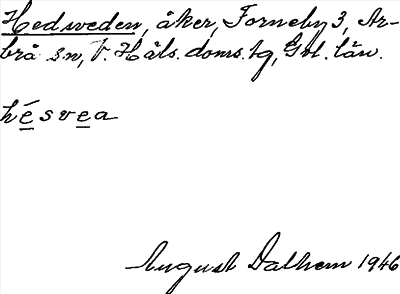 Hedsweden, åker, Forneby 3, Ar-
brå sn, V. Häls. doms. tg, Gvl. län.
hésvea
August Dalhem 1946